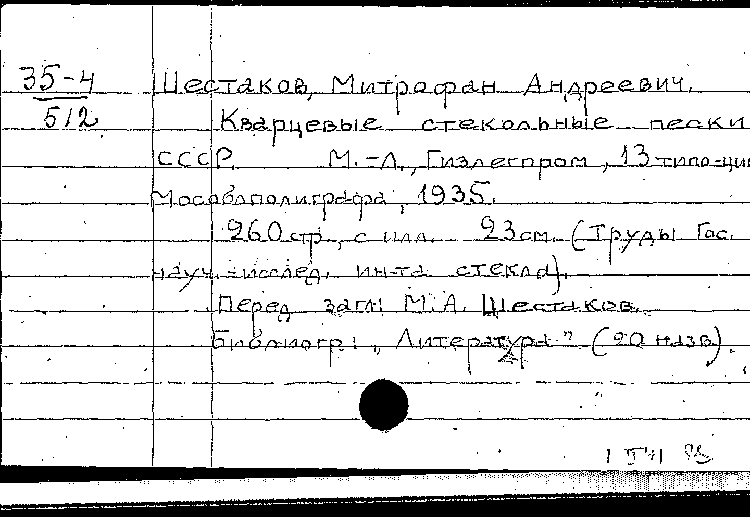 35-4
512
Шестаков, Митрофан Андреевич.
Кварцевые стекольные пески
СССР. М.-Л., Гизлегпром, 13 типо-цин
Мособлполиграфа, 1935.
260 стр., с илл. 23 см. (Труды Гос.
науч.-исслед. ин-та стекла).
Перед загл: М.А. Шестаков.
Библиогр: „Литература" (20 назв).